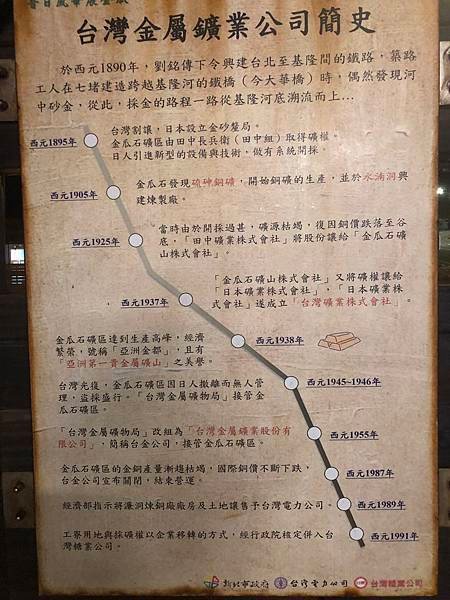 昔日風華展金旅
台灣金屬鑛業公司簡史
於西元1890年，劉銘傳下令興建台北至基隆間的鐵路，築路
工人在七堵建造跨越基隆河的鐵橋（今大華橋）時，偶然發現河
中砂金，從此，採金的路程一路從基隆河底溯流而上…
西元1895年
台灣割讓，日本設立金砂釐局。
金瓜石鑛區由田中長兵衛（田中組）取得鑛權。
日人引進新型的設備與技術，做有系統開採。
西元1905年
金瓜石發現硫砷銅鑛，開始銅鑛的生產，並於水湳洞興
建煉製廠。
西元1925年
當時由於開採過甚，鑛源枯竭，復因銅價跌落至谷
底，「田中鑛業株式會社」將股份讓給「金瓜石鑛
山株式會社」。
西元1937年
「金瓜石鑛山株式會社」又將鑛權讓給
「日本鑛業株式會社」，「日本鑛業株
式會社」遂成立「台灣鑛業株式會社」。
金瓜石鑛區達到生產高峰，經濟
繁榮，號稱「亞洲金都」，且有
「亞洲第一貴金屬鑛山」之美譽。
西元1938年
台灣光復，金瓜石鑛區因日人撤離而無人管
理，盜採盛行。「台灣金屬鑛物局」接管金
瓜石鑛區。
西元1945~1946年
「台灣金屬鑛物局」改組為「台灣金屬鑛業股份有
限公司」，簡稱台金公司，接管金瓜石鑛區。
西元1955年
金瓜石鑛區的金銅產量漸趨枯竭，國際銅價不斷下跌，
台金公司宣布關閉，結束營運。
西元1987年
經濟部指示將濂洞煉銅廠廠房及土地讓售予台灣電力公司。
西元1989年
工寮用地與採鑛權以企業移轉的方式，經行政院核定併入台
灣糖業公司。
西元1991年
新北市政府 台灣電力公司 台灣糖業公司